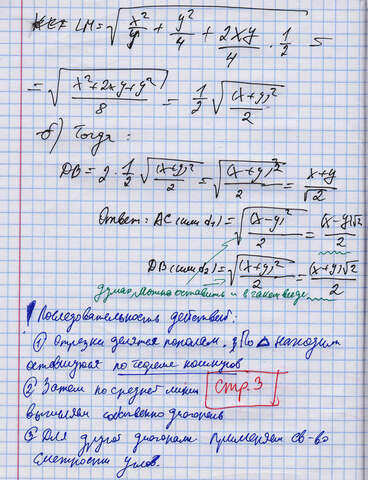 LM = √(x²/4 + y²/4 + 2xy/4 · 1/2) =
= √((x²+2xy+y²)/8) = 1/2 √((x+y)²/2)
б) Тогда :
DB = 2 · 1/2 √((x+y)²/2) = √((x+y)²/2) = (x+y)/√2
Ответ: AC (или d₁) = √((x-y)²/2) = (x-y)√2/2
DB (или d₂) = √((x+y)²/2) = (x+y)√2/2
думаю можно оставить и в таком виде
Последовательность действий:
① Отрезки делятся пополам, По Δ находим
оставшуюся по теореме косинусов
② Затем по средней линии стр. 3
вычисляем собственно диагональ
③ Для другой диагонали применяем св-во
смежности углов.